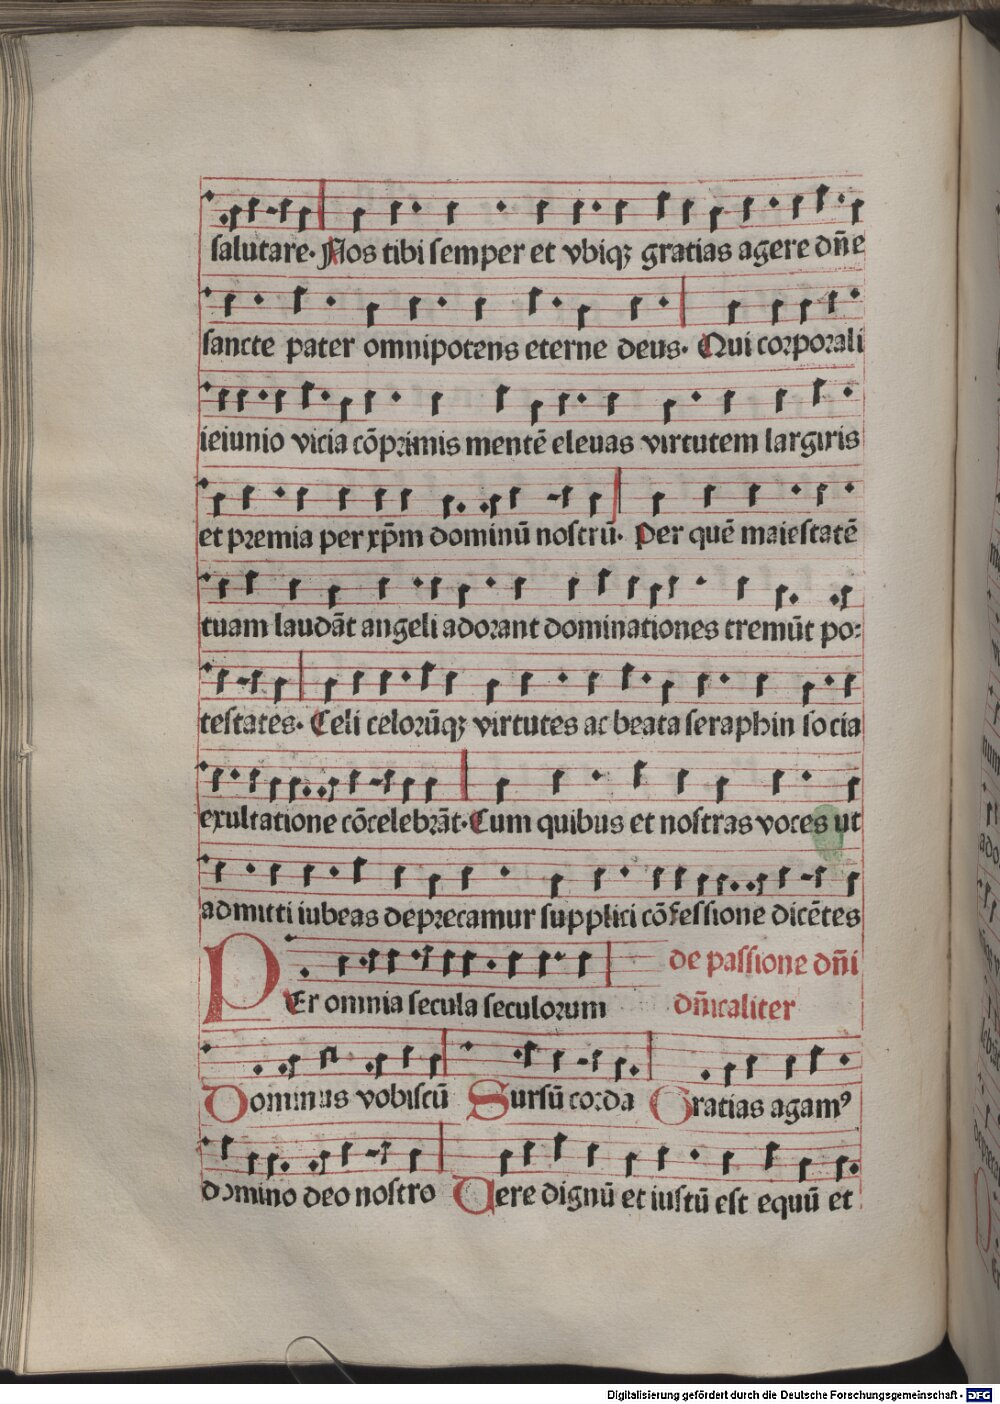 salutare. Nos tibi semper et vbiqꝫ gratias agere dn̄e
sancte pater omnipotens eterne deus. Qui corporali
ieiunio vicia cōprimis mentē eleuas virtutem largiris
et premia per xp̄m dominū nostrū. Per quē maiestatē
tuam laudāt angeli adorant dominationes tremūt po⸗
testates. Celi celorūqꝫ virtutes ac beata seraphin socia
exultatione cōcelebrāt. Cum quibus et nostras voces ut
admitti iubeas deprecamur supplici cōfessione dicētes
PEr omnia secula seculorum de passione dn̄i
dn̄icaliter
Dominus vobiscū Sursū corda Gratias agamꝰ
domino deo nostro Uere dignū et iustū est equū et
Digitalisierung gefördert durch die Deutsche Forschungsgemeinschaft - DFG